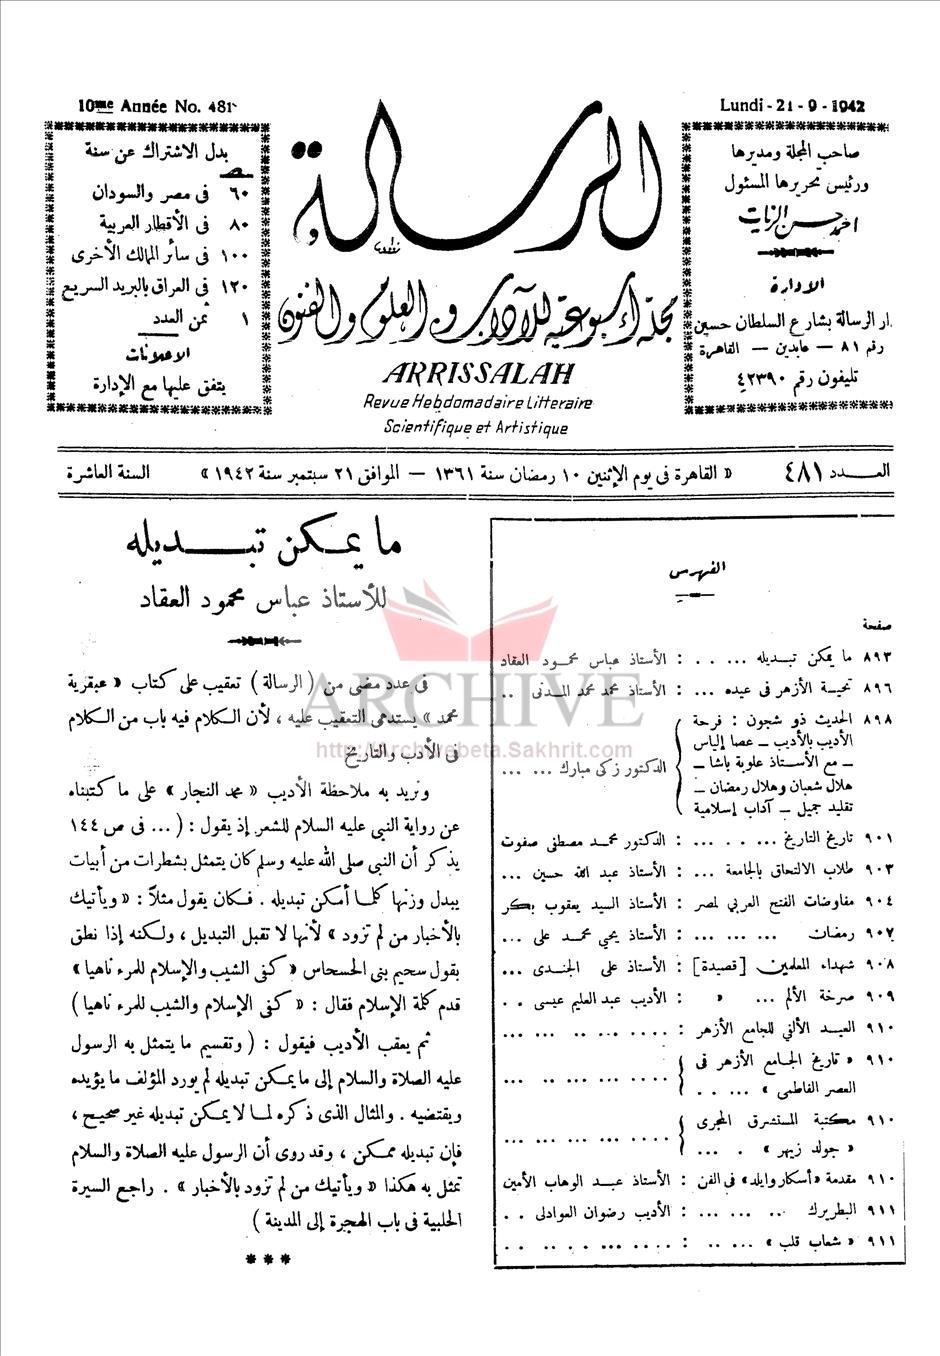 10me Année No. 481
Lundi - 21 - 9 - 1942
صاحب المجلة ومديرها
ورئيس تحريرها المسئول
احمد حسن الزيات
الادارة
دار الرسالة بشارع السلطان حسين
رقم ٨١ — عابدين — القاهرة
تليفون رقم ٤٢٣٩٠
الرسالة
مجلة أسبوعية للآداب والعلوم والفنون
ARRISSALAH
Revue Hebdomadaire Litteraire
Scientifique et Artistique
بدل الاشتراك عن سنة
٦٠ فى مصر والسودان
٨٠ فى الأقطار العربية
١٠٠ فى سائر الممالك الأخرى
١٢٠ فى العراق بالبريد السريع
١ ثمن العدد
الاعلانات
يتفق عليها مع الإدارة
العـــدد ٤٨١ « القاهرة فى يوم الإثنين ١٠ رمضان سنة ١٣٦١ — الموافق ٢١ سبتمبر سنة ١٩٤٢ » السنة العاشرة
الفهرس
صفحة
٨٩٣ ما يمكن تبـديله ... . . : الأستاذ عباس محمود العقاد
٨٩٦ تحيـة الأزهر فى عيده ... : الأستاذ محمد محمد المدنى ..
٨٩٨ الحديث ذو شجون : فرحة
الأديب بالأديب ــ عصا إلياس
ــ مع الأستاذ علوبة باشا ــ
هلال شعبان وهلال رمضان ــ
تقليد جميل ــ آداب إسلامية
الدكتور زكى مبارك ... ...
٩٠١ تاريخ التاريخ ... . . ... : الدكتور محمـد مصطفى صفوت
٩٠٣ طلاب الالتحاق بالجامعة ... : الأستاذ عبد الله حسين ...
٩٠٤ مفاوضات الفتح العربي لمصر : الأستاذ السيد يعقوب بكر
٩٠٧ رمضان ... ... ... : الأستاذ يحيى محمـد على ...
٩٠٨ شهداء المعلمين [قصيدة] : الأستاذ على الجندى ...
٩٠٩ صرخة الألم ... « : الأديب عبد العليم عيسى . .
٩١٠ العيـد الألفي للجامع الأزهر : .... ... .. ... ...
٩١٠ « تاريخ الجـامع الأزهر فى
العصر الفاطمى » ... . .
٩١٠ مكتبة المستشرق المجرى
« جولد زيهر » . ...
٩١٠ مقدمة « أسكار وايلد » فى الفن : الأستاذ عبـد الوهاب الأمين
٩١١ البطريرك .. ... ... : الأديب رضوان العوادلى . .
٩١١ « شعاب قلب » ... .. : .... ... . .. .. . .
ما يمكن تبـــديله
للأستاذ عباس محمود العقاد
فى عدد مضى من ( الرسالة ) تعقيب على كتاب « عبقرية
محمد » يستدعى التعقيب عليه ، لأن الكلام فيه باب من الكلام
فى الأدب والتاريخ
ونريد به ملاحظة الأديب « محمد النجار » على ما كتبناه
عن رواية النبى عليه السلام للشعر إذ يقول : ( ... فى ص ١٤٤
يذكر أن النبى صلى الله عليه وسلم كان يتمثل بشطرات من أبيات
يبدل وزنها كلما أمكن تبديله . فكان يقول مثلاً : « ويأتيك
بالأخبار من لم تزود » لأنها لا تقبل التبديل ، ولكنه إذا نطق
بقول سحيم بنى الحسحاس « كفى الشيب والإسلام للمرء ناهيا »
قدم كلمة الإسلام فقال : « كفى الإسلام والشيب للمرء ناهيا )
ثم يعقب الأديب فيقول : ( وتقسيم ما يتمثل به الرسول
عليه الصلاة والسلام إلى ما يمكن تبديله لم يورد المؤلف ما يؤيده
ويقتضيه . والمثال الذى ذكره لما لا يمكن تبديله غير صحيح ،
فإن تبديله ممكن ، وقد روى أن الرسول عليه الصلاة والسلام
تمثل به هكذا « ويأتيك من لم تزود بالأخبار » . راجع السيرة
الحلبية فى باب الهجرة إلى المدينة )
* * *
ARCHIVE
http://Archivebeta.Sakhrit.com